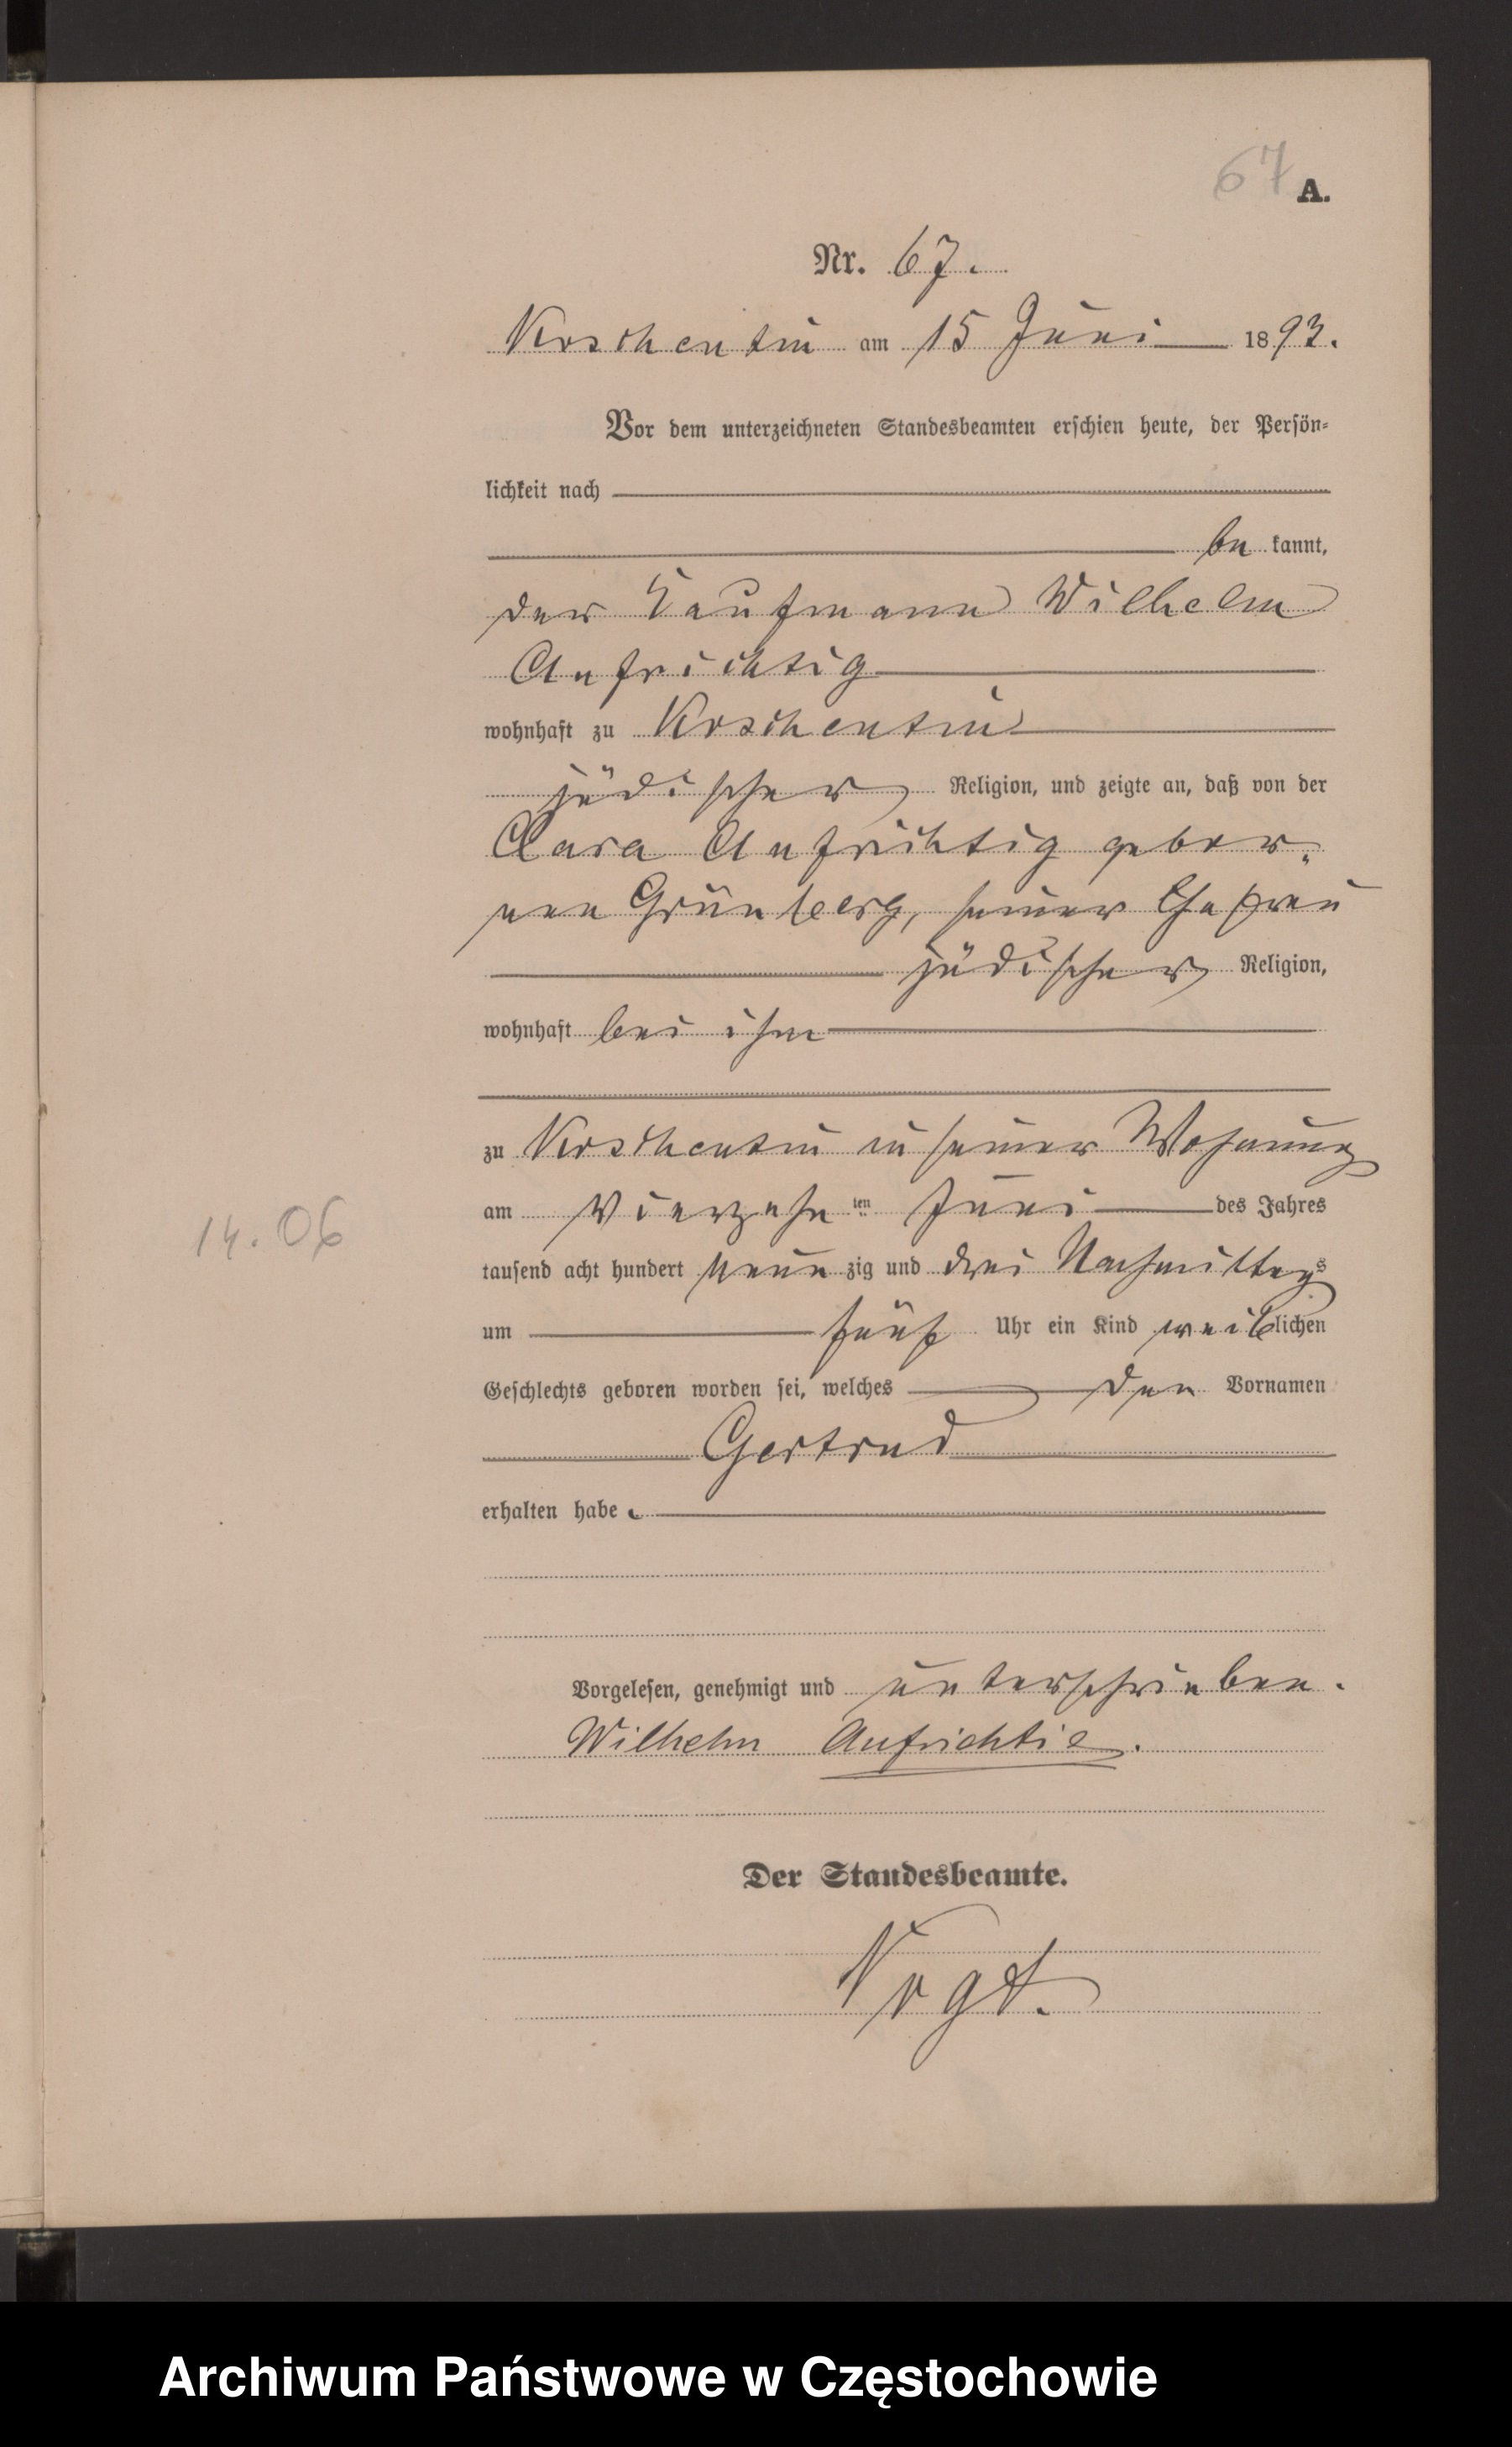 67 A.
Nr. 67.
Koschentin am 15 Juni 1893.
Vor dem unterzeichneten Standesbeamten erschien heute, der Persön-
lichkeit nach
be kannt,
der Kaufmann Wilhelm
Aufrichtig
wohnhaft zu Koschentin
jüdischer Religion, und zeigte an, daß von der
Clara Aufrichtig gebor-
nen Grünberg, seiner Ehefrau
jüdischer Religion,
wohnhaft bei ihm
zu Koschentin in seiner Wohnung
am vierzehn ten Juni des Jahres
14.06
tausend acht hundert neun zig und drei Nachmittags
um fünf Uhr ein Kind weiblichen
Geschlechts geboren worden sei, welches den Vornamen
Gertrud
erhalten habe.
Vorgelesen, genehmigt und unterschrieben.
Wilhelm Aufrichtig.
Der Standesbeamte.
Vogt.
Archiwum Państwowe w Częstochowie